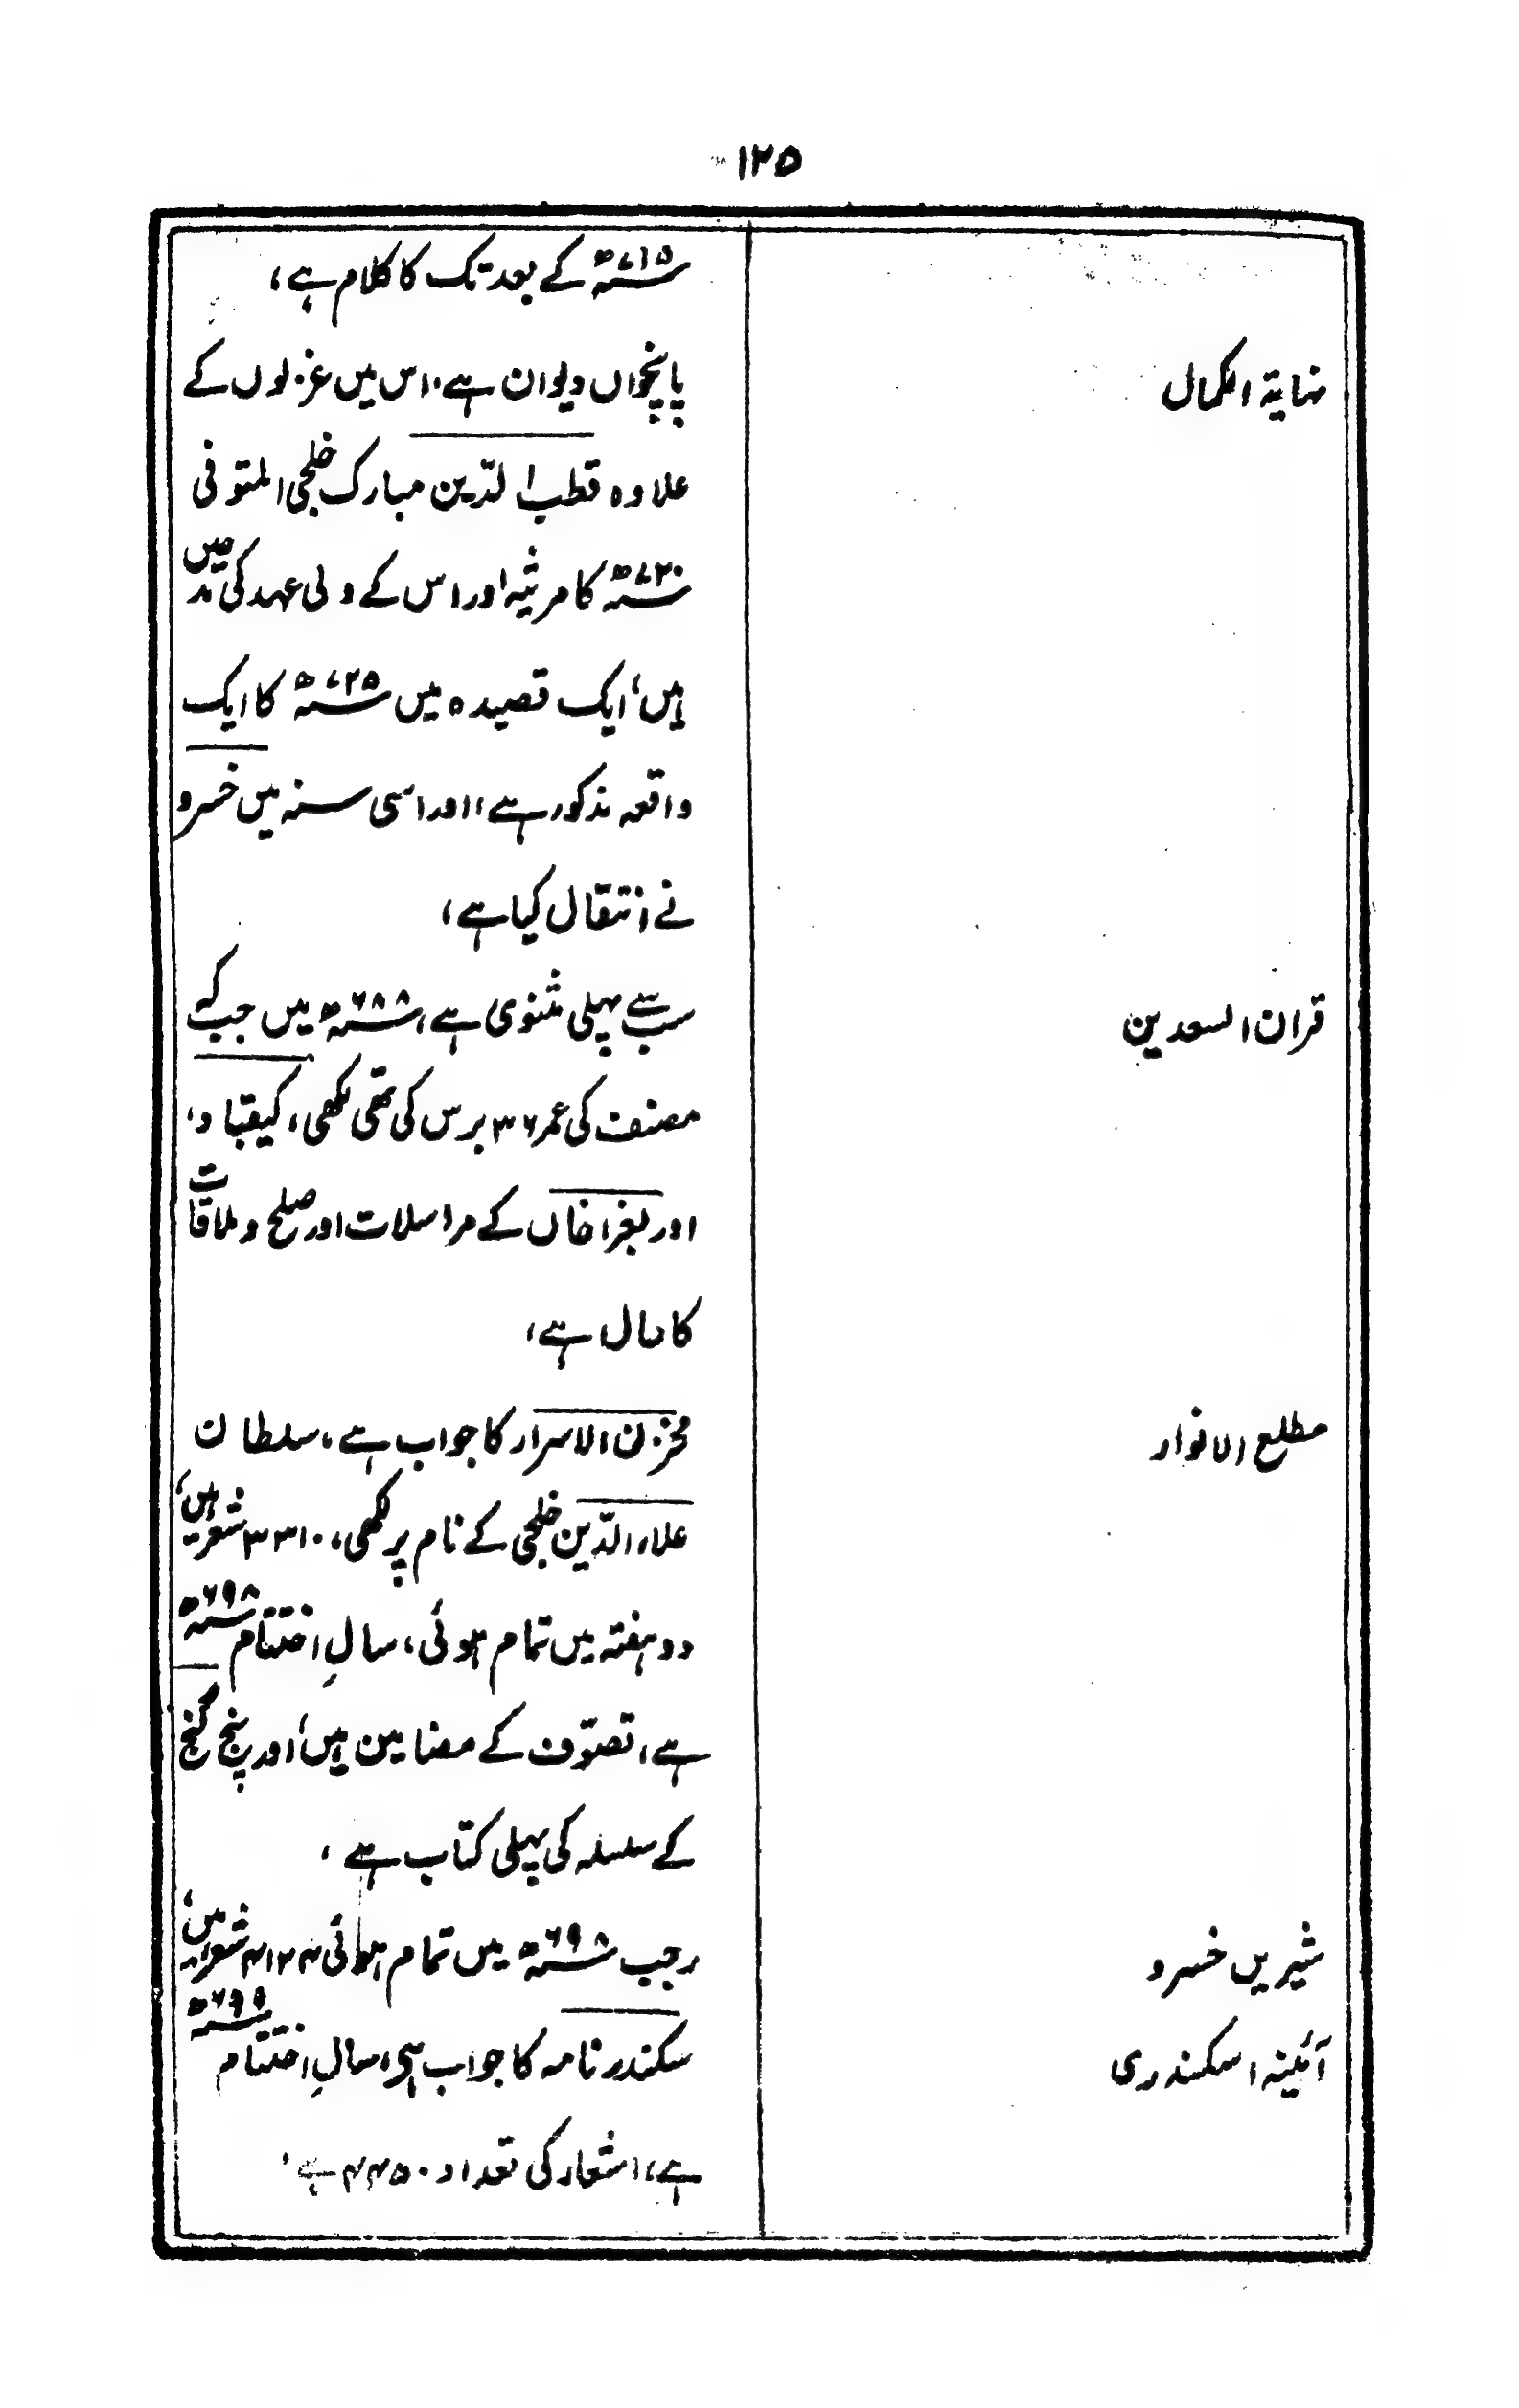 ۱۲۵
۷۱۵ھ کے بعد تک کا کلام ہے،
نہایۃ الکمال
پانچواں دیوان ہے، اس میں غزلوں کے
علاوہ قطب الدّین مبارک خلجی المتوفی
۷۲۰ھ کا مرثیہ اور اس کے ولی عہد کی مدمیں
ہیں، ایک قصیدہ میں ۷۲۵ھ کا ایک
واقعہ مذکور ہے، اور اسی سنہ میں خسرو
نے انتقال کیا ہے،
قران السعدین
سب سے پہلی مثنوی ہے، ۶۸۸ھ میں جب کہ
مصنف کی عمر ۳۶ برس کی تھی لکھی، کیقباد،
اور بغرا خاں کے مراسلات اور صلح و ملاقات
کا حال ہے،
مطلع الانوار
مخزن الاسرار کا جواب ہے، سلطان
علاء الدّین خلجی کے نام پر لکھی، ۳۳۱۰ شعر ہیں،
دو ہفتہ میں تمام ہوئی، سالِ اختتام ۶۹۸ھ
ہے، تصوّف کے مضامین ہیں، اور پنج گنج
کے سلسلہ کی پہلی کتاب ہے،
شیریں خسرو
رجب ۶۹۸ھ میں تمام ہوئی ۴۱۲۴ شعر ہیں،
آئینہ اسکندری
سکندر نامہ کا جواب ہی، سالِ اختتام ۶۹۹ھ
ہے، اشعار کی تعداد ۴۴۵۰ ہے،